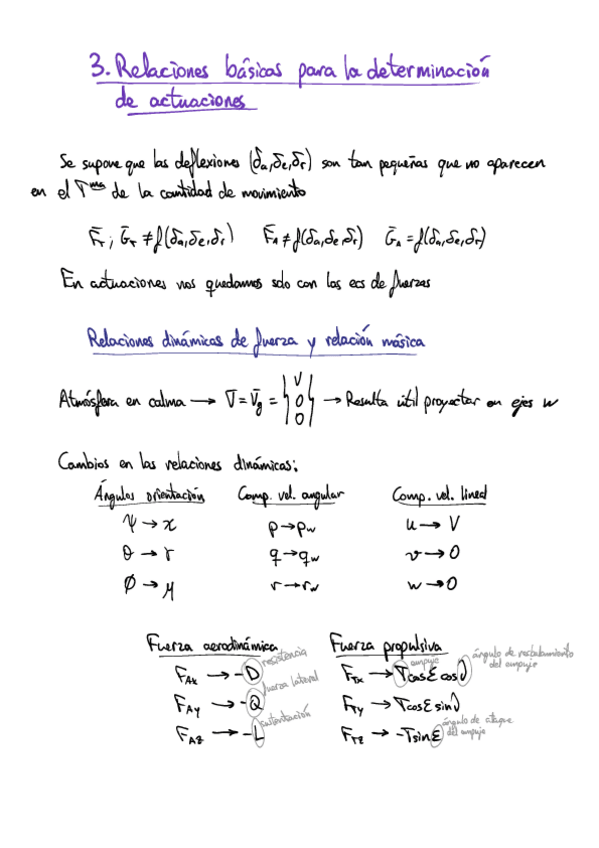 3. Relaciones básicas para la determinación
de actuaciones
Se supone que las deflexiones (δa,δe,δr) son tan pequeñas que no aparecen
en el Tma de la cantidad de movimiento
F̄T ; ḠT ≠ f(δa,δe,δr) F̄A ≠ f(δa,δe,δr) ḠA = f(δa,δe,δr)
En actuaciones nos quedamos solo con las ecs de fuerzas
Relaciones dinámicas de fuerza y relación másica
Atmósfera en calma → V̄ = V̄g = {V 0 0} → Resulta útil proyectar en ejes w
Cambios en las relaciones dinámicas:
Ángulos orientación Comp. vel. angular Comp. vel. lineal
Ψ → χ p → pw u → V
θ → γ q → qw v → 0
Φ → μ r → rw w → 0
Fuerza aerodinámica Fuerza propulsiva
FAx → -D resistencia FTx → T cos ε cos ν empuje ángulo de resbalamiento del empuje
FAy → -Q fuerza lateral FTy → T cos ε sin ν
FAz → -L sustentación FTz → -T sin ε ángulo de ataque del empuje